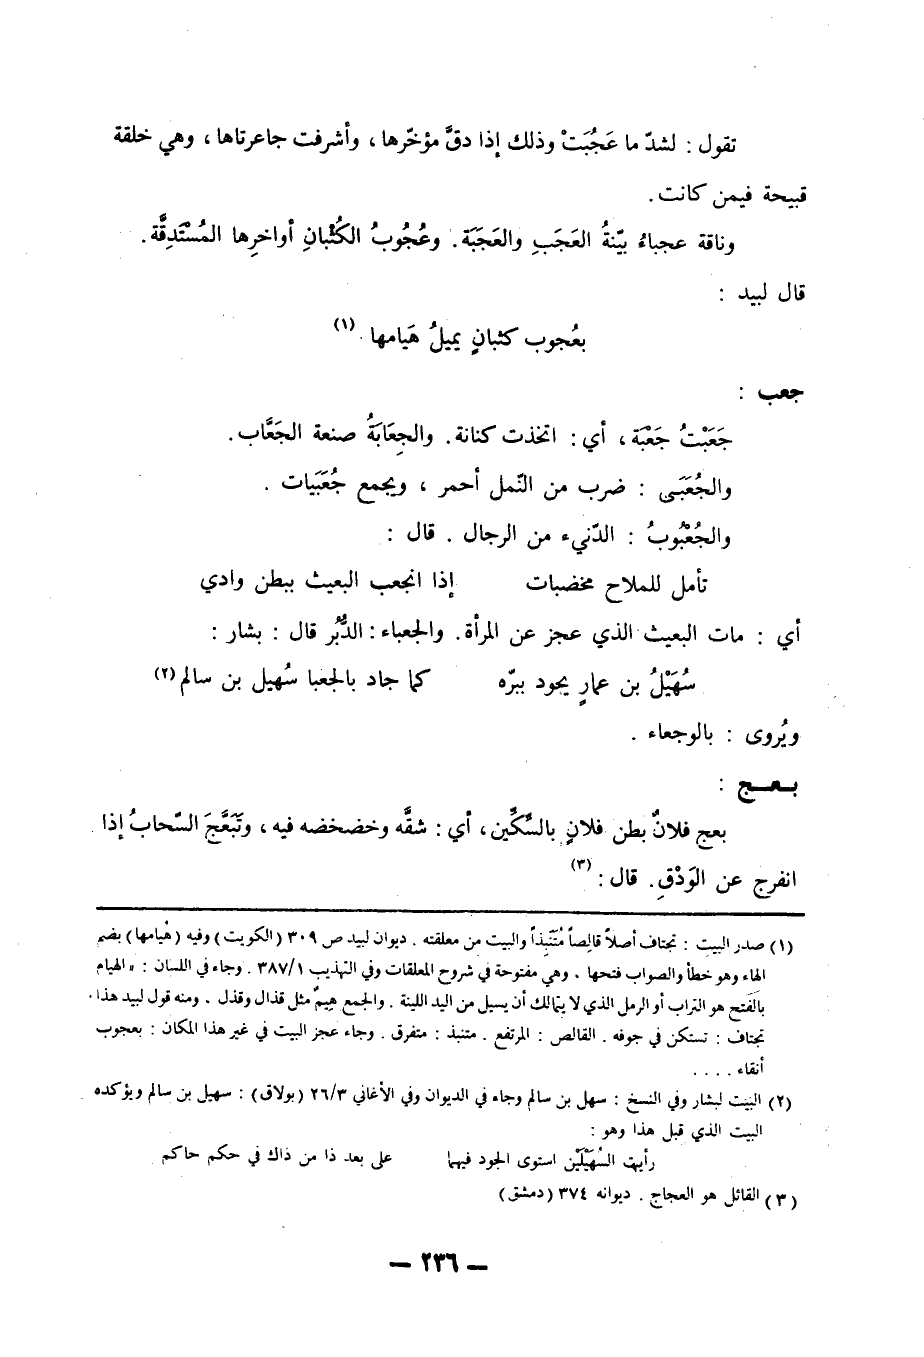 تقول : لشدّ ما عَجُبَتْ وذلك إذا دقَّ مؤخّرها ، وأشرفت جاعرتاها ، وهي خلقة
قبيحة فيمن كانت .
وناقة عجباءُ بيّنةُ العَجَبِ والعَجَبَة . وعُجُوبُ الكُثْبانِ أواخرِها المُسْتَدِقَّة .
قال لبيد :
بعُجوب كثبانٍ يميلُ هَيامها (١)
جعب :
جَعَبْتُ جَعْبَة ، أي : اتخذت كنانة . والجِعَابَةُ صنعة الجَعَّاب .
والجُعَبَـى : ضرب من النّمل أحمر ، ويجمع جُعَبَيات .
والجُعْبُوبُ : الدّنيء من الرجال . قال :
تأمل للملاح مخضبات إذا انجعب البعيث ببطن وادي
أي : مات البعيث الذي عجز عن المرأة . والجعباء : الدُّبُر قال : بشار :
سُهَيْلُ بن عمارٍ يجود ببرّه كما جاد بالجعبا سُهيل بن سالم (٢)
ويُروى : بالوجعاء .
بـعـــج :
بعج فلانٌ بطن فلانٍ بالسِّكِّين ، أي : شقَّه وخضخضه فيه ، وتَبَعَّجَ السّحابُ إذا
انفرج عن الوَدْقِ . قال : (٣)
(١) صدر البيت : تجتاف أصلاً قالِصاً مُتَنَبِذاً والبيت من معلقته . ديوان لبيد ص ٣٠٩ (الكويت) وفيه (هُيامها) بضم
الهاء وهو خطأ والصواب فتحها . وهي مفتوحة في شروح المعلقات وفي التهذيب ٣٨٧/١ . وجاء في اللسان : « الهيام
بالفتح هو التراب أو الرمل الذي لا يتمالك أن يسيل من اليد اللينة . والجمع هِيمٌ مثل قذال وقذل . ومنه قول لبيد هذا .
تجتاف : تستكن في جوفه . القالص : المرتفع . متنبذ : متفرق . وجاء عجز البيت في غير هذا المكان : بعجوب
أنقاء . . . .
(٢) البيت لبشار وفي النسخ : سهل بن سالم وجاء في الديوان وفي الأغاني ٢٦/٣ (بولاق) : سهيل بن سالم ويؤكده
البيت الذي قبل هذا وهو :
رأيت السُهَيْلَيْن استوى الجود فيهما على بعد ذا من ذاك في حكم حاكم
(٣) القائل هو العجاج . ديوانه ٣٧٤ (دمشق)
— ٢٣٦ —